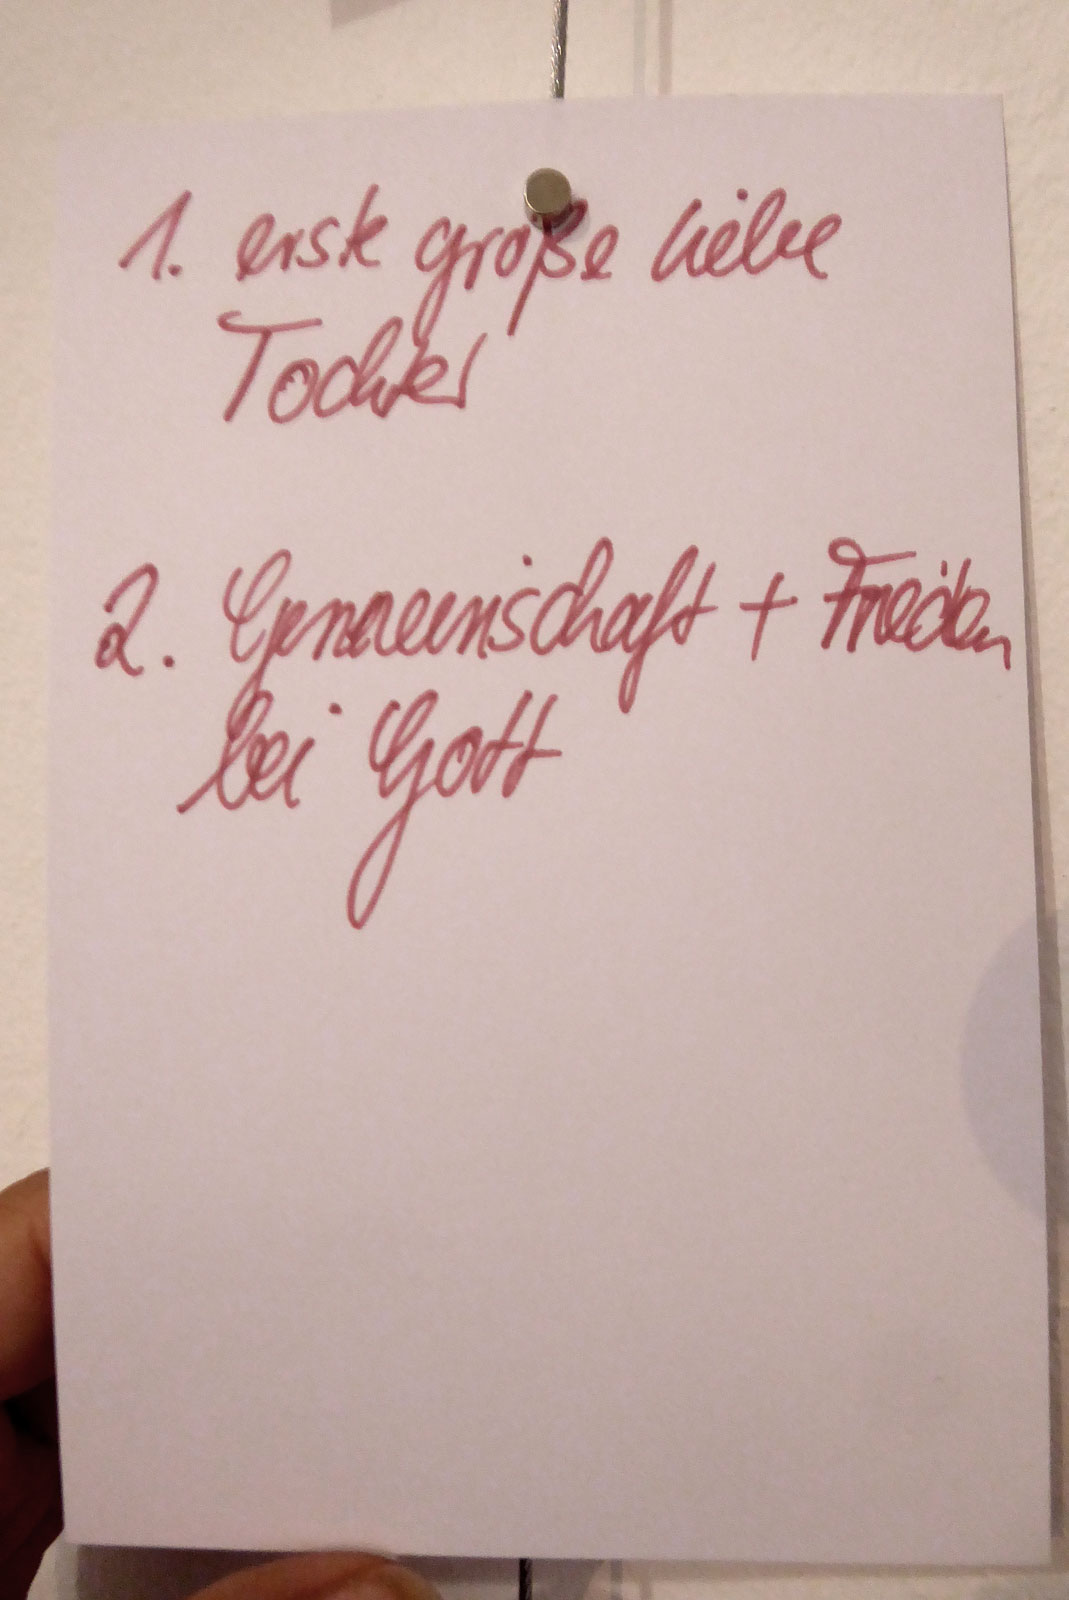 1. erste große Liebe
Tochter
2. Gemeinschaft + Frieden
bei Gott